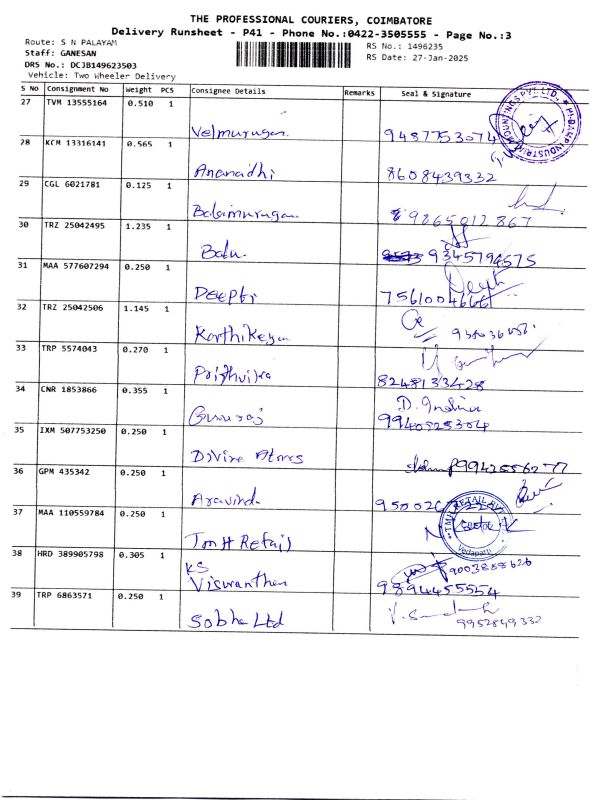 THE PROFESSIONAL COURIERS, COIMBATORE
Delivery Runsheet - P41 - Phone No.:0422-3505555 - Page No.:3
Route: S N PALAYAM RS No.: 1496235
Staff: GANESAN RS Date: 27-Jan-2025
DRS No.: DCJB149623503
Vehicle: Two Wheeler Delivery
S No Consignment No Weight PCS Consignee Details Remarks Seal & Signature
27 TVM 13555164 0.510 1
Velmurugan. 9487753074
28 KCM 13316141 0.565 1
Ananadhi 8608439332
29 CGL 6021781 0.125 1
Balamurugan 9865012867
30 TRZ 25042495 1.235 1
Babu. 9345794575
31 MAA 577607294 0.250 1
Deepti 7561004666
32 TRZ 25042506 1.145 1
Karthikeyan
33 TRP 5574043 0.270 1
Prithviraj 8248133428
34 CNR 1853866 0.355 1 D. Indira
Gururaj 9940525304
35 IXM 507753250 0.250 1
Divine Stores 9942556277
36 GPM 435342 0.250 1
Aravind. 95002
37 MAA 110559784 0.250 1
TMH Retail
38 HRD 389905798 0.305 1 9003888626
KS
Viswanthan 9894455554
39 TRP 6863571 0.250 1
Sobha Ltd 9952849332